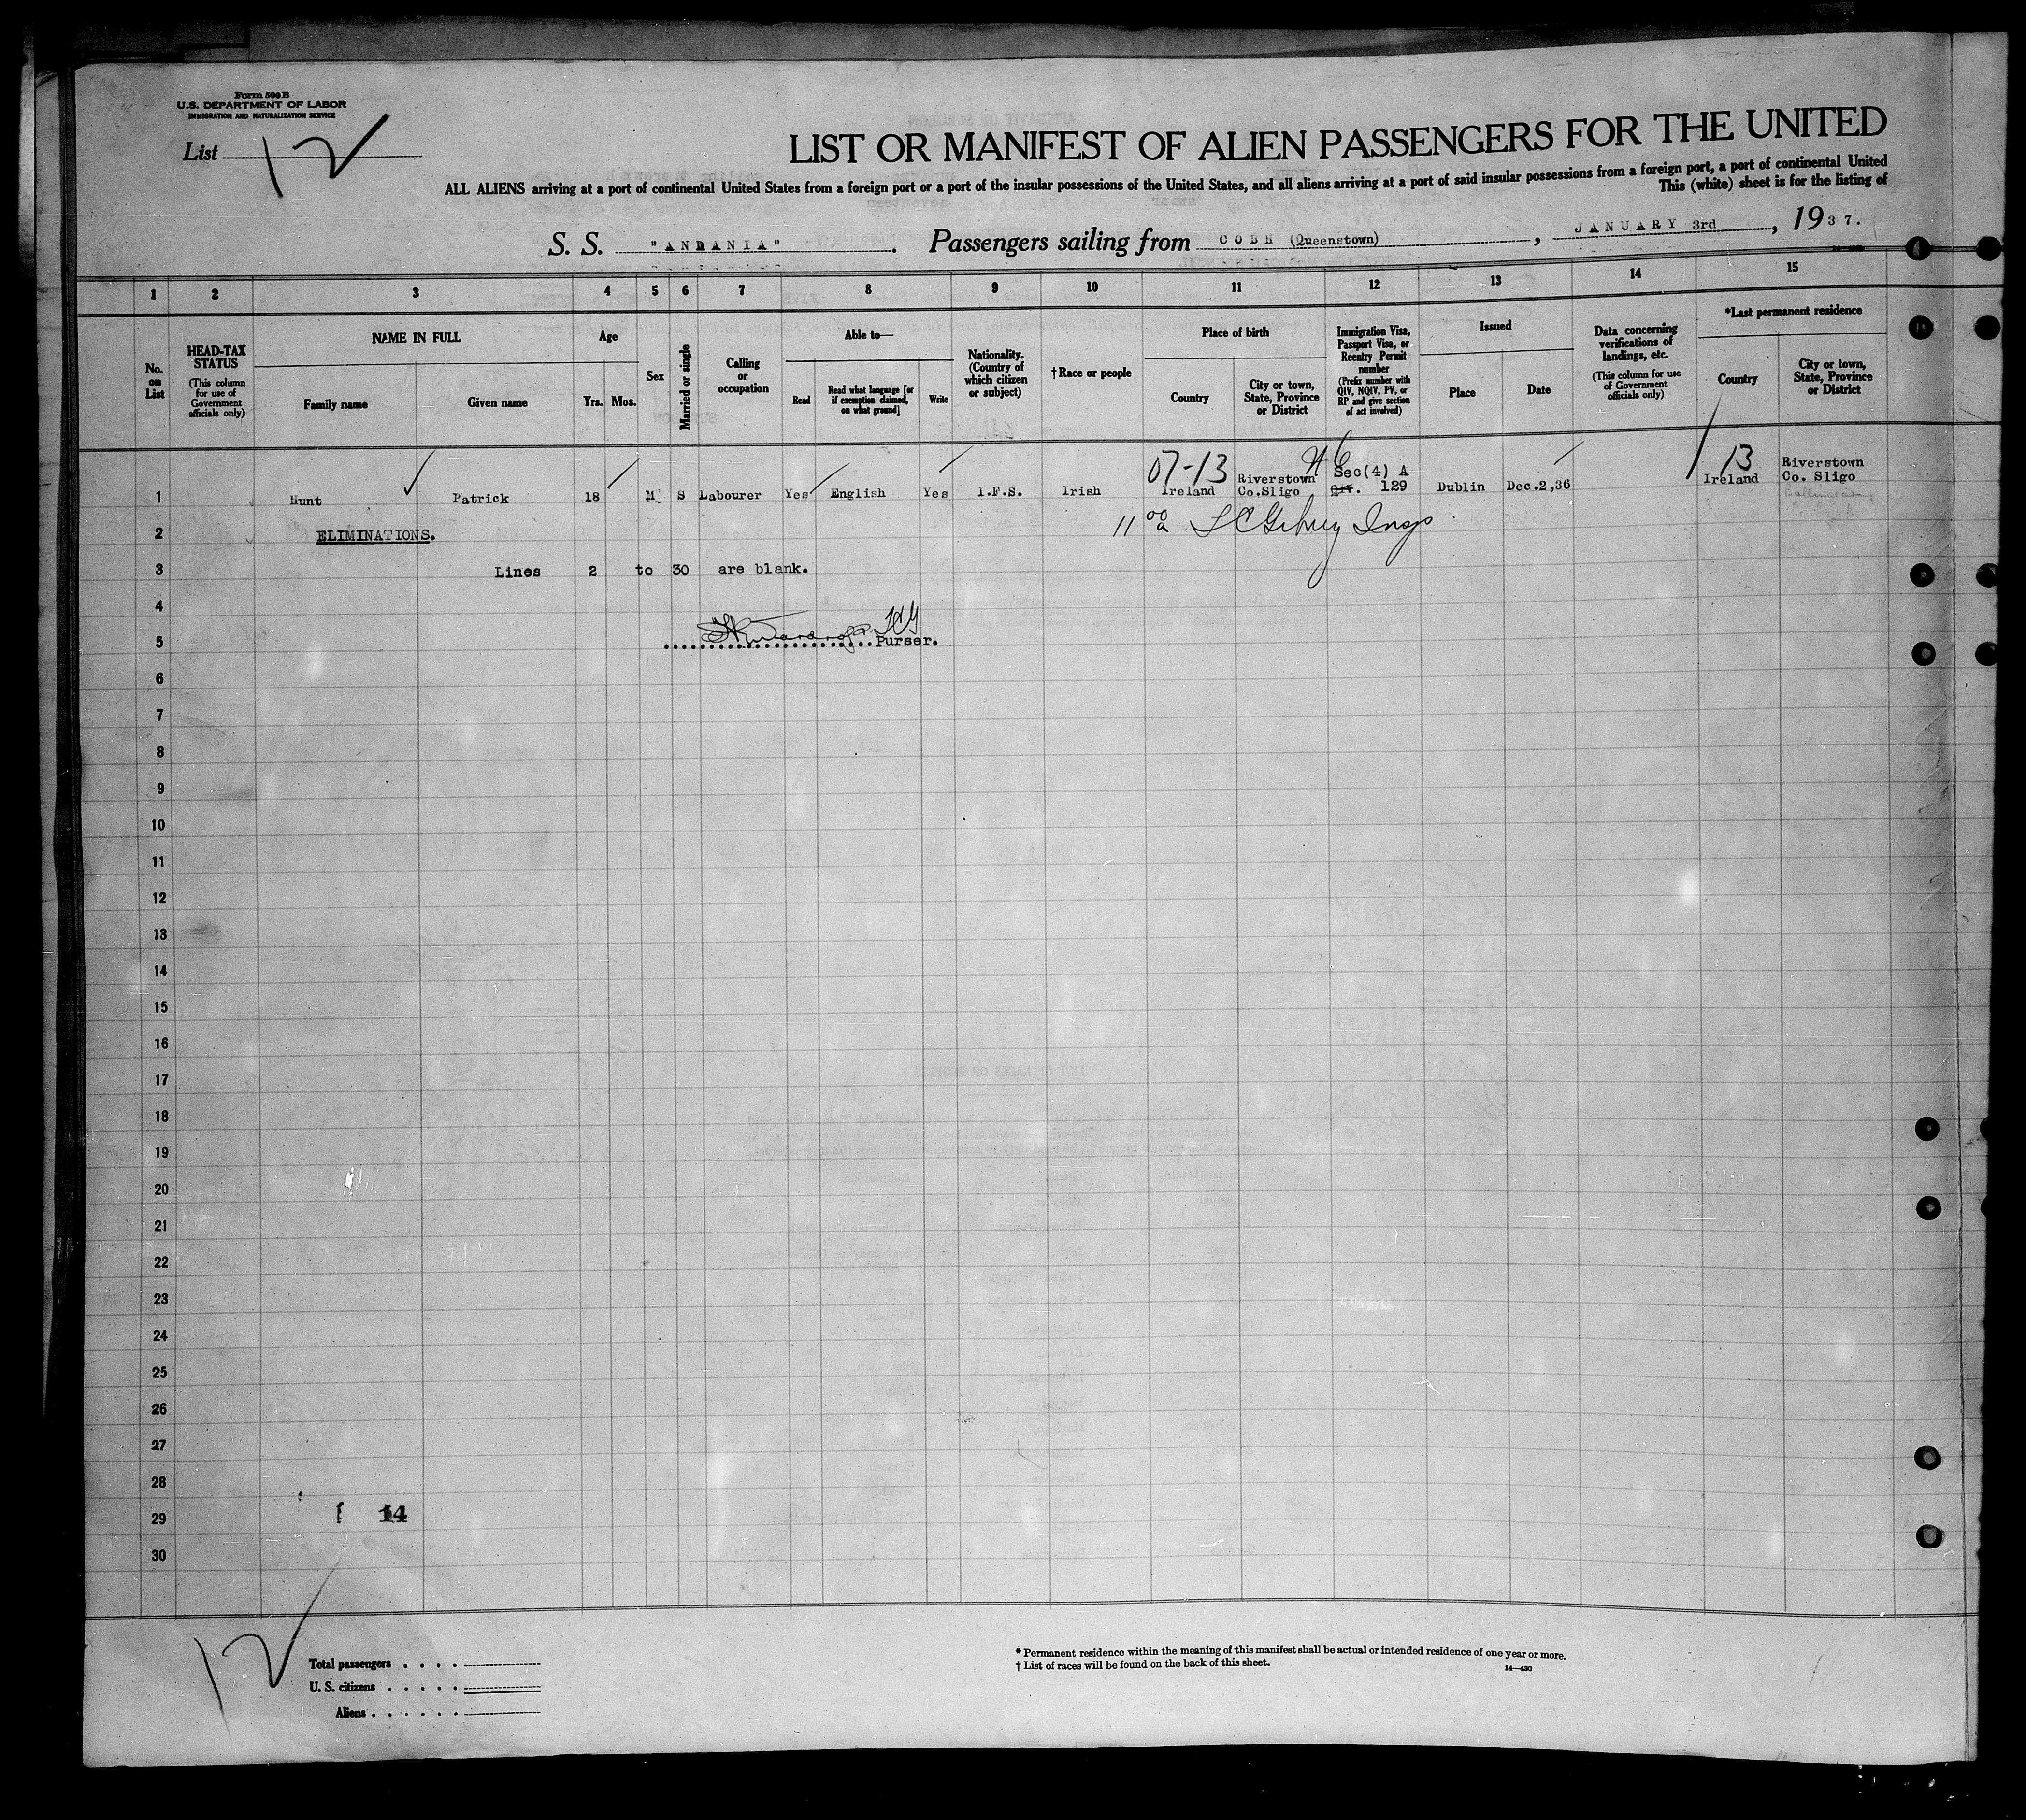 Form 500 B
U.S. DEPARTMENT OF LABOR
IMMIGRATION AND NATURALIZATION SERVICE
List 12
LIST OR MANIFEST OF ALIEN PASSENGERS FOR THE UNITED
ALL ALIENS arriving at a port of continental United States from a foreign port or a port of the insular possessions of the United States, and all aliens arriving at a port of said insular possessions from a foreign port, a port of continental United
This (white) sheet is for the listing of
S. S. "ANDANIA". Passengers sailing from COBH (Queenstown), JANUARY 3rd, 1937.
1 2 3 4 5 6 7 8 9 10 11 12 13 14 15
No. on List
HEAD-TAX STATUS (This column for use of Government officials only)
NAME IN FULL
Family name
Given name
Age
Yrs. Mos.
Sex
Married or single
Calling or occupation
Able to—
Read
Read what language [or if exemption claimed, on what ground]
Write
Nationality. (Country of which citizen or subject)
†Race or people
Place of birth
Country
City or town, State, Province or District
Immigration Visa, Passport Visa, or Reentry Permit number (Prefix number with QIV, NQIV, PV, or RP and give section of act involved)
Issued
Place
Date
Data concerning verifications of landings, etc. (This column for use of Government officials only)
*Last permanent residence
Country
City or town, State, Province or District
07-13
13
1 Hunt Patrick 18 M S Labourer Yes English Yes I.F.S. Irish Ireland Riverstown Co.Sligo Sec(4) A Qiv. 129 Dublin Dec.2,36 Ireland Riverstown Co. Sligo
2 ELIMINATIONS.
3 Lines 2 to 30 are blank.
4
5 Purser.
6
7
8
9
10
11
12
13
14
15
16
17
18
19
20
21
22
23
24
25
26
27
28
29 14
30
12
Total passengers
U. S. citizens
Aliens
* Permanent residence within the meaning of this manifest shall be actual or intended residence of one year or more.
† List of races will be found on the back of this sheet.
14—430